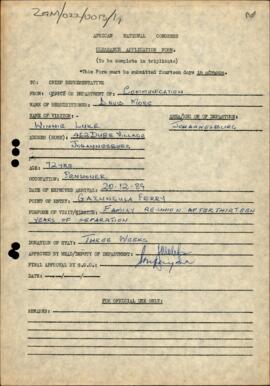 ZAM/022/0015/19
AFRICAN NATIONAL CONGRESS
CLEARANCE APPLICATION FORM.
(To be complete in triplicate)
*This Form must be submitted fourteen days in ADVANCE.
TO: CHIEF REPRESENTATIVE
FROM: (OFFICE OR DEPARTMENT OF) COMMUNICATION
NAME OF REQUISITIONER: DAVID
NAME OF VISITOR: AREA/COU OF OF DEPARTURE
WINNIE LUKE JOHANNESBURG
ADDRESS (HOME): DUBE VILLAGE
JOHANNESBURG
AGE: 72 YRS
OCCUPATION: PENSIONER
DATE OF EXPECTED ARRIVAL: 20-12-89
POINT OF ENTRY: KAZUNGULA FERRY
PURPOSE OF VISIT: FAMILY REUNION AFTER THIRTEEN
YEARS OF SEPARATION
DURATION OF STAY: THREE WEEKS
APPROVED BY HEAD/DEPUTY OF DEPARTMENT:
FINAL APPROVAL BY
DATE:
FOR OFFICIAL USE ONLY:
REMARKS: